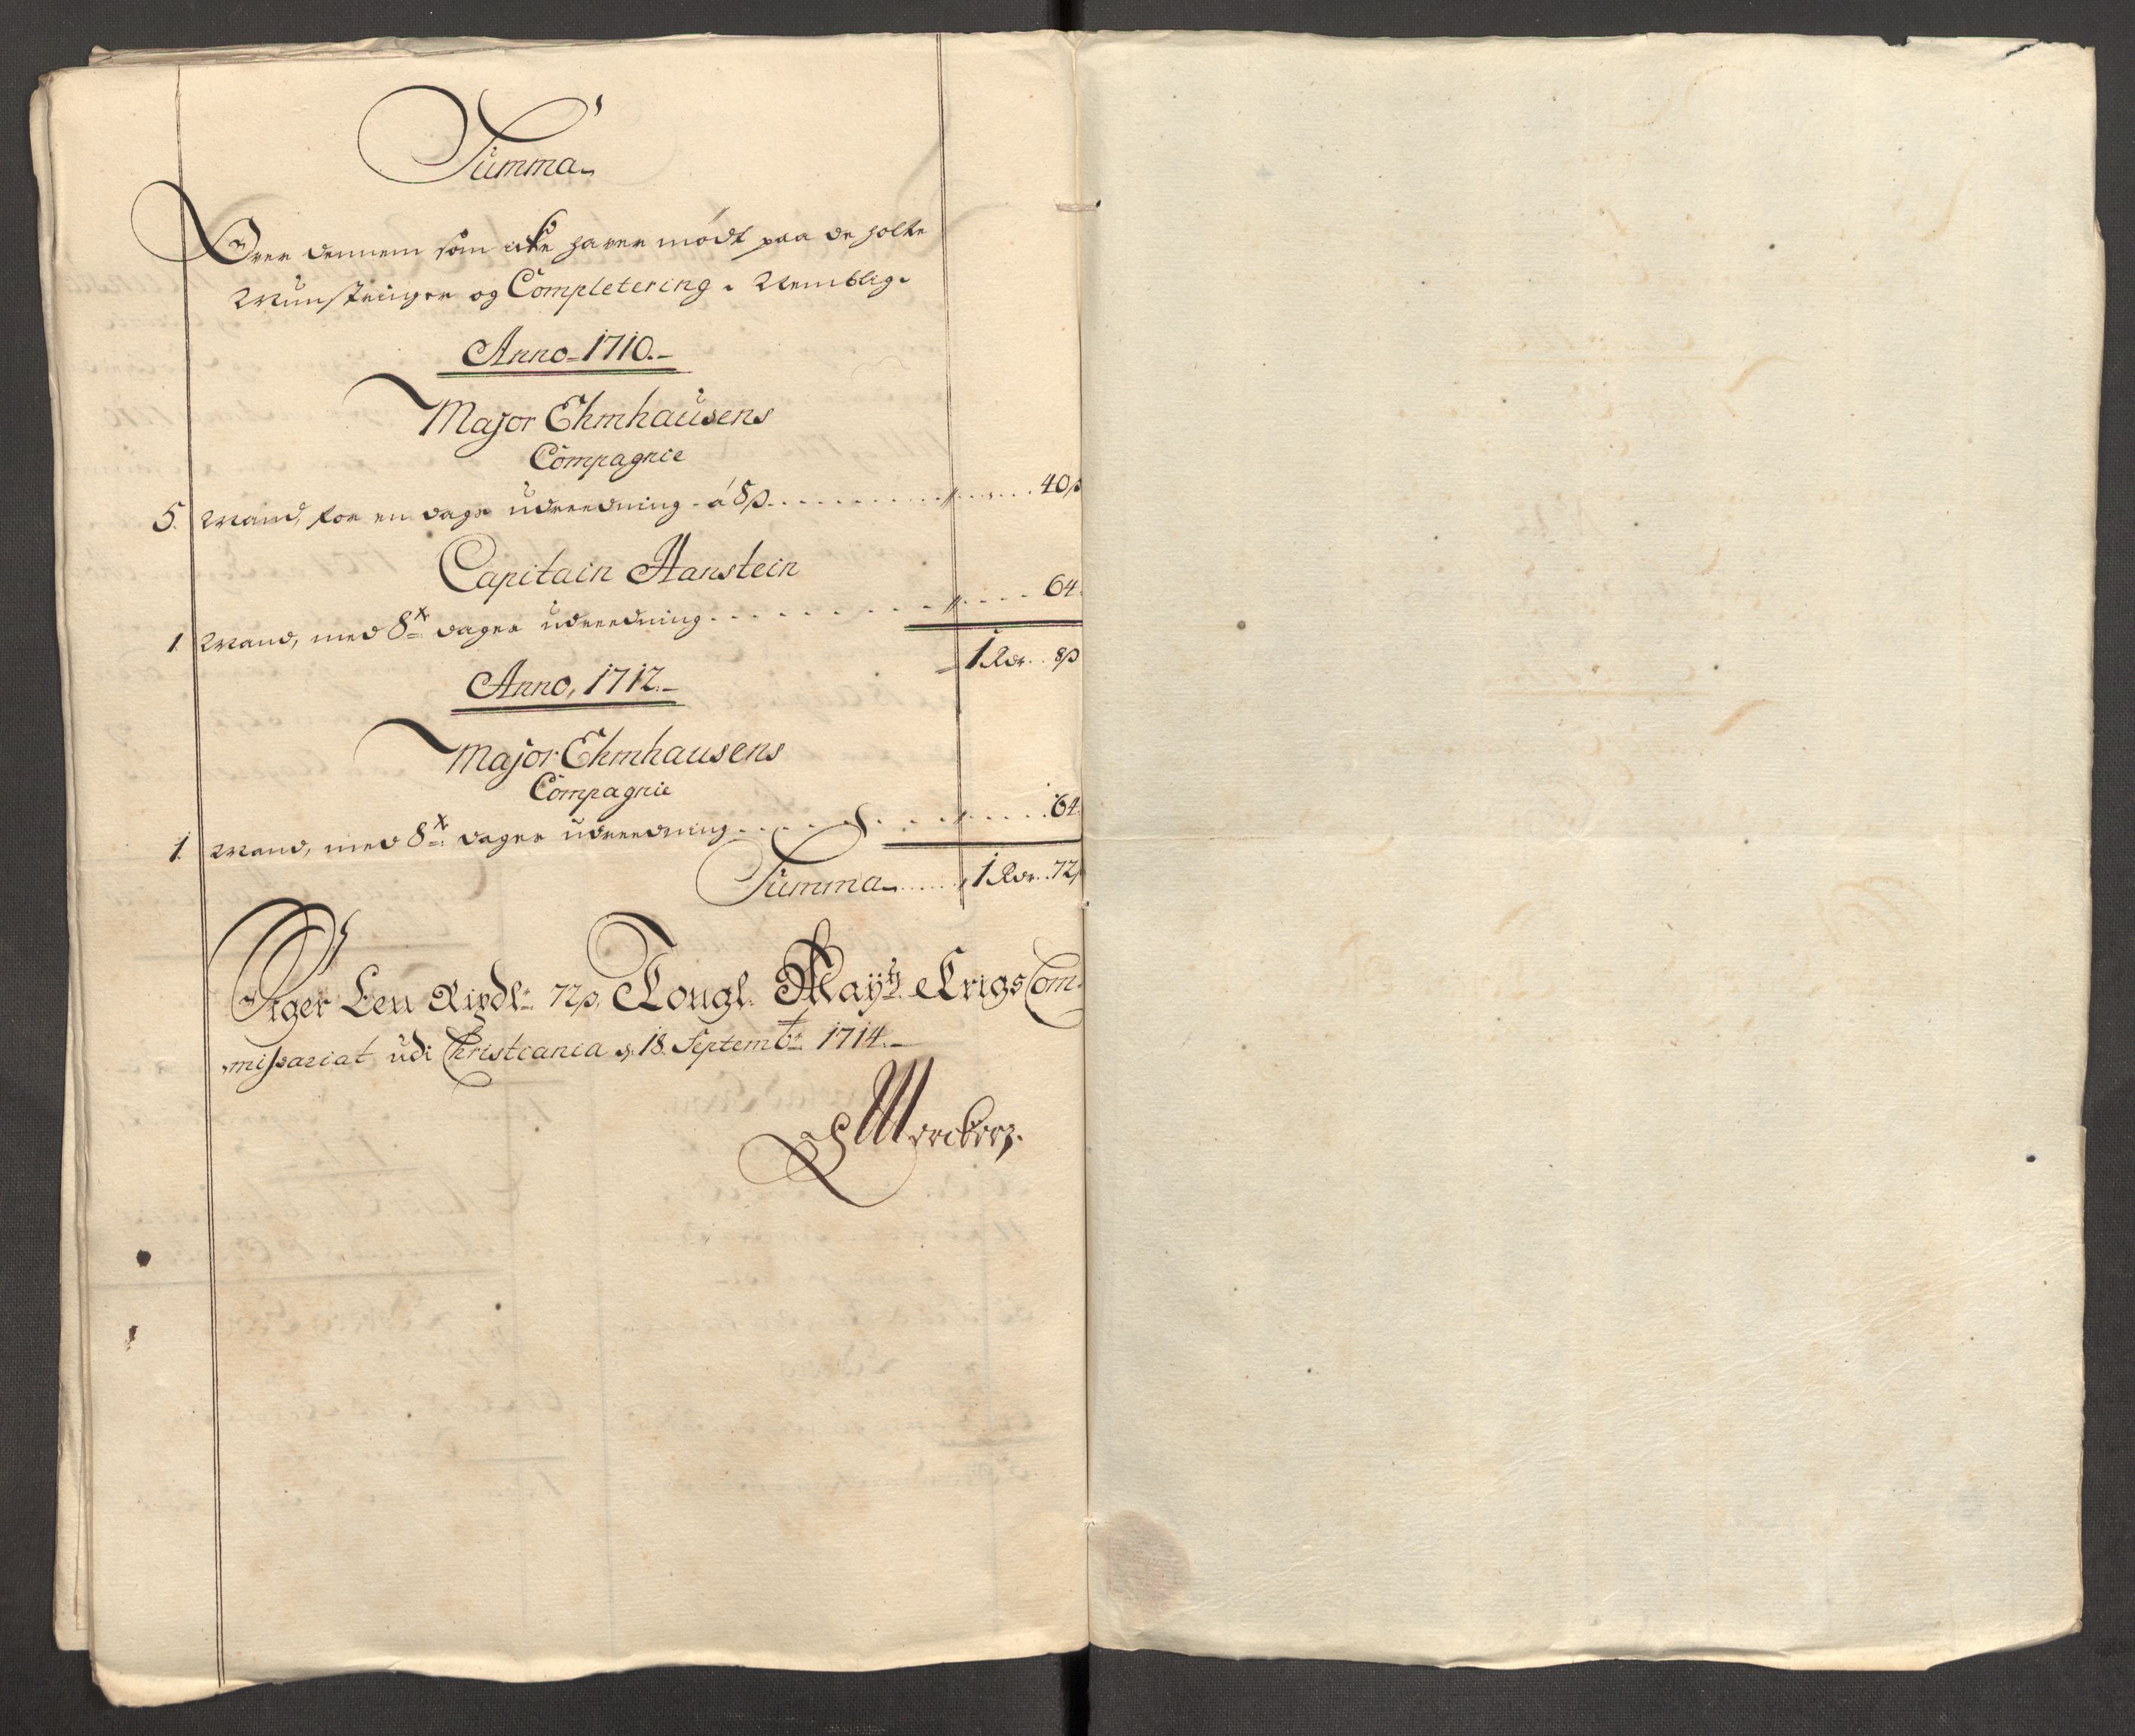 Summa
Over dennem som icke haver mødt paa de holte
Munstringer og Completering, Nemblig.
Anno 1710.
Major Ehmhausens
Compagnie
5. Mand, for en dags udreedning á 8ß. 40ß
Capitain Hanstein
1. Mand, med 8te dages udreedning. 64.
1 Rdr. 8ß
Anno, 1712.
Major Ehmhausens
Compagnie
1. Mand, med 8te dages udreedning. 64.
Summa 1 Rdr. 72ß
Siger Een Rixdlr 72ß, Kongl. Mayts. Krigs Com-
missariat udi Christiania d. 18. Septembr 1714.